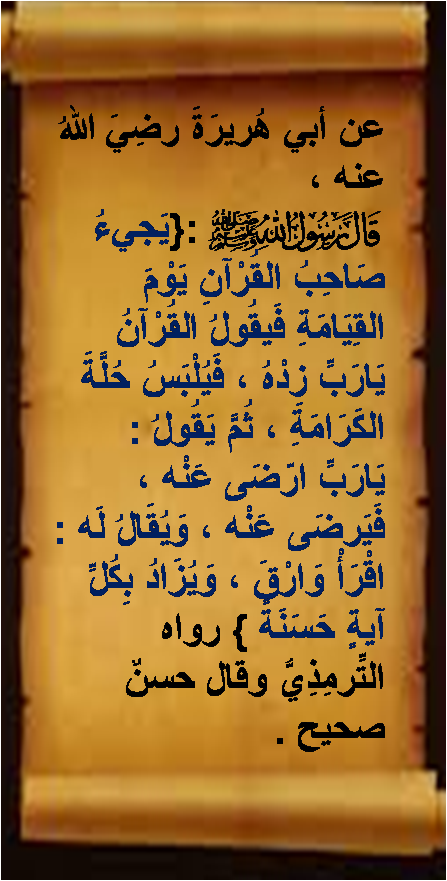 عن أبي هُريرَةَ رضِيَ اللهُ
عنه ،
قَالَ رَسُولُ اللهِ ﷺ :{يَجيءُ
صَاحِبُ القُرْآنِ يَوْمَ
القِيَامَةِ فَيقُولُ القُرْآنُ
يَارَبِّ زِدْهُ ، فَيُلْبَسُ حُلَّةَ
الكَرَامَةِ ، ثُمَّ يَقُولُ :
يَارَبِّ ارّضَى عَنْه ،
فَيَرضَى عَنْه ، وَيُقَالُ لَه :
اقْرَأْ وَارْقَ ، وَيُزَادُ بِكُلِّ
آيةٍ حَسَنَةً } رواه
التِّرمِذِيُّ وقال حسنٌ
صحيح .